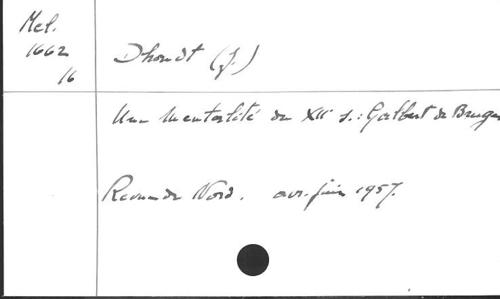 Mel.
1662
16
Dhondt (J.)
Une mentalité du XIIe s. : Galbert de Bruges
Revue du Nord. avr. juin 1957.